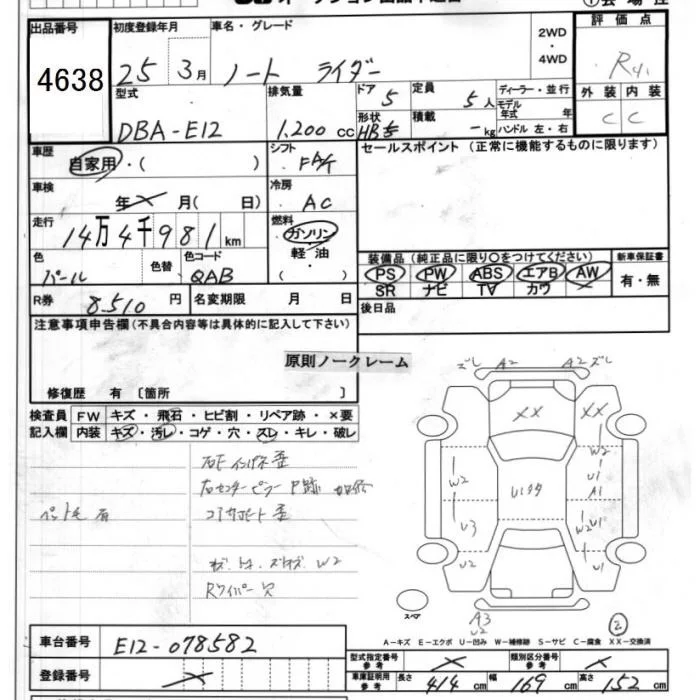 出品番号
4638
初度登録年月
25 3月
車名・グレード
ノート ライダー
2WD
・
4WD
評価点
R
外装 内装
C C
型式
DBA-E12
排気量
1.200 cc
ドア
5
定員
5人
形状
HB
積載
-kg
ディーラー・並行
モデル年式 年
ハンドル 左・右
車歴
自家用・( )
シフト
FAT
セールスポイント (正常に機能するものに限ります)
車検
年 月( 日)
冷房
AC
走行
14万4千981km
燃料
ガソリン
軽油
( )
色
パール
色替
色コード
QAB
装備品 (純正品に限り○をつけてください)
新車保証書
PS PW ABS エアB AW
SR ナビ TV カワ
有・無
R券
8.510円
名変期限 月 日
後日品
注意事項申告欄(不具合内容等は具体的に記入して下さい)
原則ノークレーム
修復歴 有 〔箇所 〕
検査員
記入欄
FW キズ・飛石・ヒビ割・リペア跡・×要
内装 キズ・汚レ・コゲ・穴・スレ・キレ・破レ
右Fインパネ歪
右センターピラーP跡
コアサポート歪
ペット毛有
W2
Rワイパー穴
ズレ A2 A2 ズレ
XX XX
W2 W2
U1
A1
U1クタ
U3 W2 U1
U2 U1
スペア
A3
U2
②
A-キズ E-エクボ U-凹み W-補修跡 S-サビ C-腐食 XX-交換済
車台番号
E12-078582
登録番号
型式指定番号
参考
類別区分番号
参考
車庫証明用
参考
長さ 414 cm
幅 169 cm
高さ 152 cm